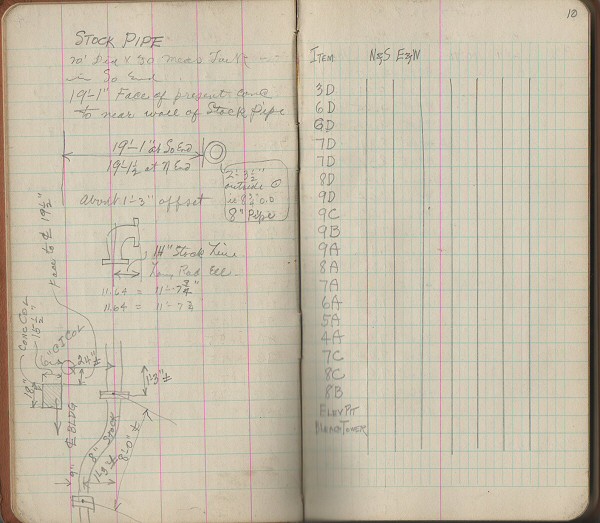 STOCK PIPE
20' Dia x 30
in So End
19'-1" Face of present Conc
to near wall of Stock Pipe
19'-1" at So End
19'-1½ at N End
2'-3½"
outside
is 8¾ O.D
8" Pipe
About 1'-3" offset
14" Stock Line
Rad Ell
11.64 = 11'-7¾"
11.64 = 11'-7¾
19½"
Face to
Conc Col
15½"
18"
6" CI Col
24"±
1'-3"±
9"
℄ BLDG
8" Stock
8'-0"±
10
ITEM N&S E&W
3D
6D
6D
7D
7D
8D
9D
9C
9B
9A
8A
7A
6A
5A
4A
7C
8C
8B
ELEV PIT